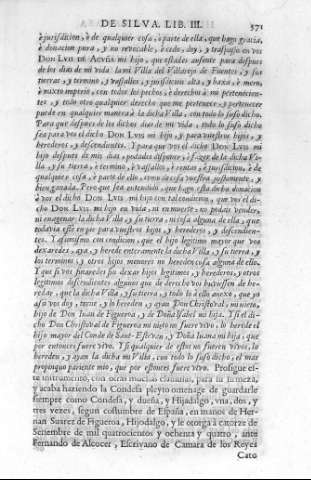 DE SILVA. LIB. III. 571
è jurisdicion, è de qualquier cosa, è parte de ella, que hago gracia,
è donacion pura, y no revocable, è cedo, doy, y traspasso en vos
DON LUIS DE ACUÑA mi hijo, que estades ausente para despues
de los dias de mi vida la mi Villa del Villarejo de Fuentes, y su
tierra, y termino, y vassallos, y jurisdicion, alta, y baxa, è mero,
è mixto imperio, con todos los pechos, è derechos à mi pertenecien-
tes, y todo otro qualquier derecho que me pertenece, y pertenecer
puede en qualquier manera à la dicha Villa, con todo lo suso dicho.
Para que despues de los dichos dias de mi vida, todo lo suso dicho
sea para vos el dicho DON LUIS mi hijo, y para vuestros hijos, y
herederos, y descendientes. Y para que vos el dicho DON LUIS mi
hijo despues de mis dias, podades disponer, è fazer de la dicha Vi-
lla, y su tierra, è terminos, è vassallos, è rentas, è jurisdicion, è de
qualquier cosa, è parte de ello, como de cosa vuestra justamente, y
bien ganada. Pero que sea entendido, que hago esta dicha donacion
à vos el dicho DON LUIS mi hijo con tal condicion, que vos el di-
cho DON LUIS mi hijo en vida, ni en muerte, no podais vender,
ni enagenar la dicha Villa, y su tierra, ni cosa alguna de ella, que
todavia esté en pie para vuestros hijos, y herederos, y descendien-
tes. Y assimismo con condicion, que el hijo legitimo mayor que vos
dexaredes, aya, y herede enteramente la dicha Villa, y su tierra, y
los terminos, y otros hijos menores no hereden cosa alguna de ello.
Y que si vos finaredes sin dexar hijos legitimos, y herederos, y otros
legitimos descendientes algunos que de derecho vos huviessen de he-
redar, que la dicha Villa, y su tierra, y todo lo à ella anexo, que yo
assi vos doy, torne, y lo hereden, y ayan Don Christoval, mi nieto,
hijo de Don Juan de Figueroa, y de Doña Isabel mi hija. Y si el di-
cho Don Christoval de Figueroa mi nieto no fuere vivo, lo herede el
hijo mayor del Conde de Sant-Estevan, y Doña Juana mi hija, que
por entonces fuere vivo. Y si qualquier de estos no fueren vivos, lo
hereden, y ayan la dicha mi Villa, con todo lo suso dicho, el mas
propinquo pariente mio, que por estonces fuere vivo. Prosigue es-
te instrumento, con otras muchas clausulas, para su firmeza,
y acaba haziendo la Condesa pleyto omenage de guardarle
siempre como Condesa, y dueña, y Hijadalgo, vna, dos, y
tres vezes, segun costumbre de España, en manos de Her-
nan Suarez de Figueroa, Hijodalgo, y le otorga à catorze de
Setiembre de mil quatrocientos y ochenta y quatro, ante
Fernando de Alcocer, Escrivano de Camara de los Reyes
Cato